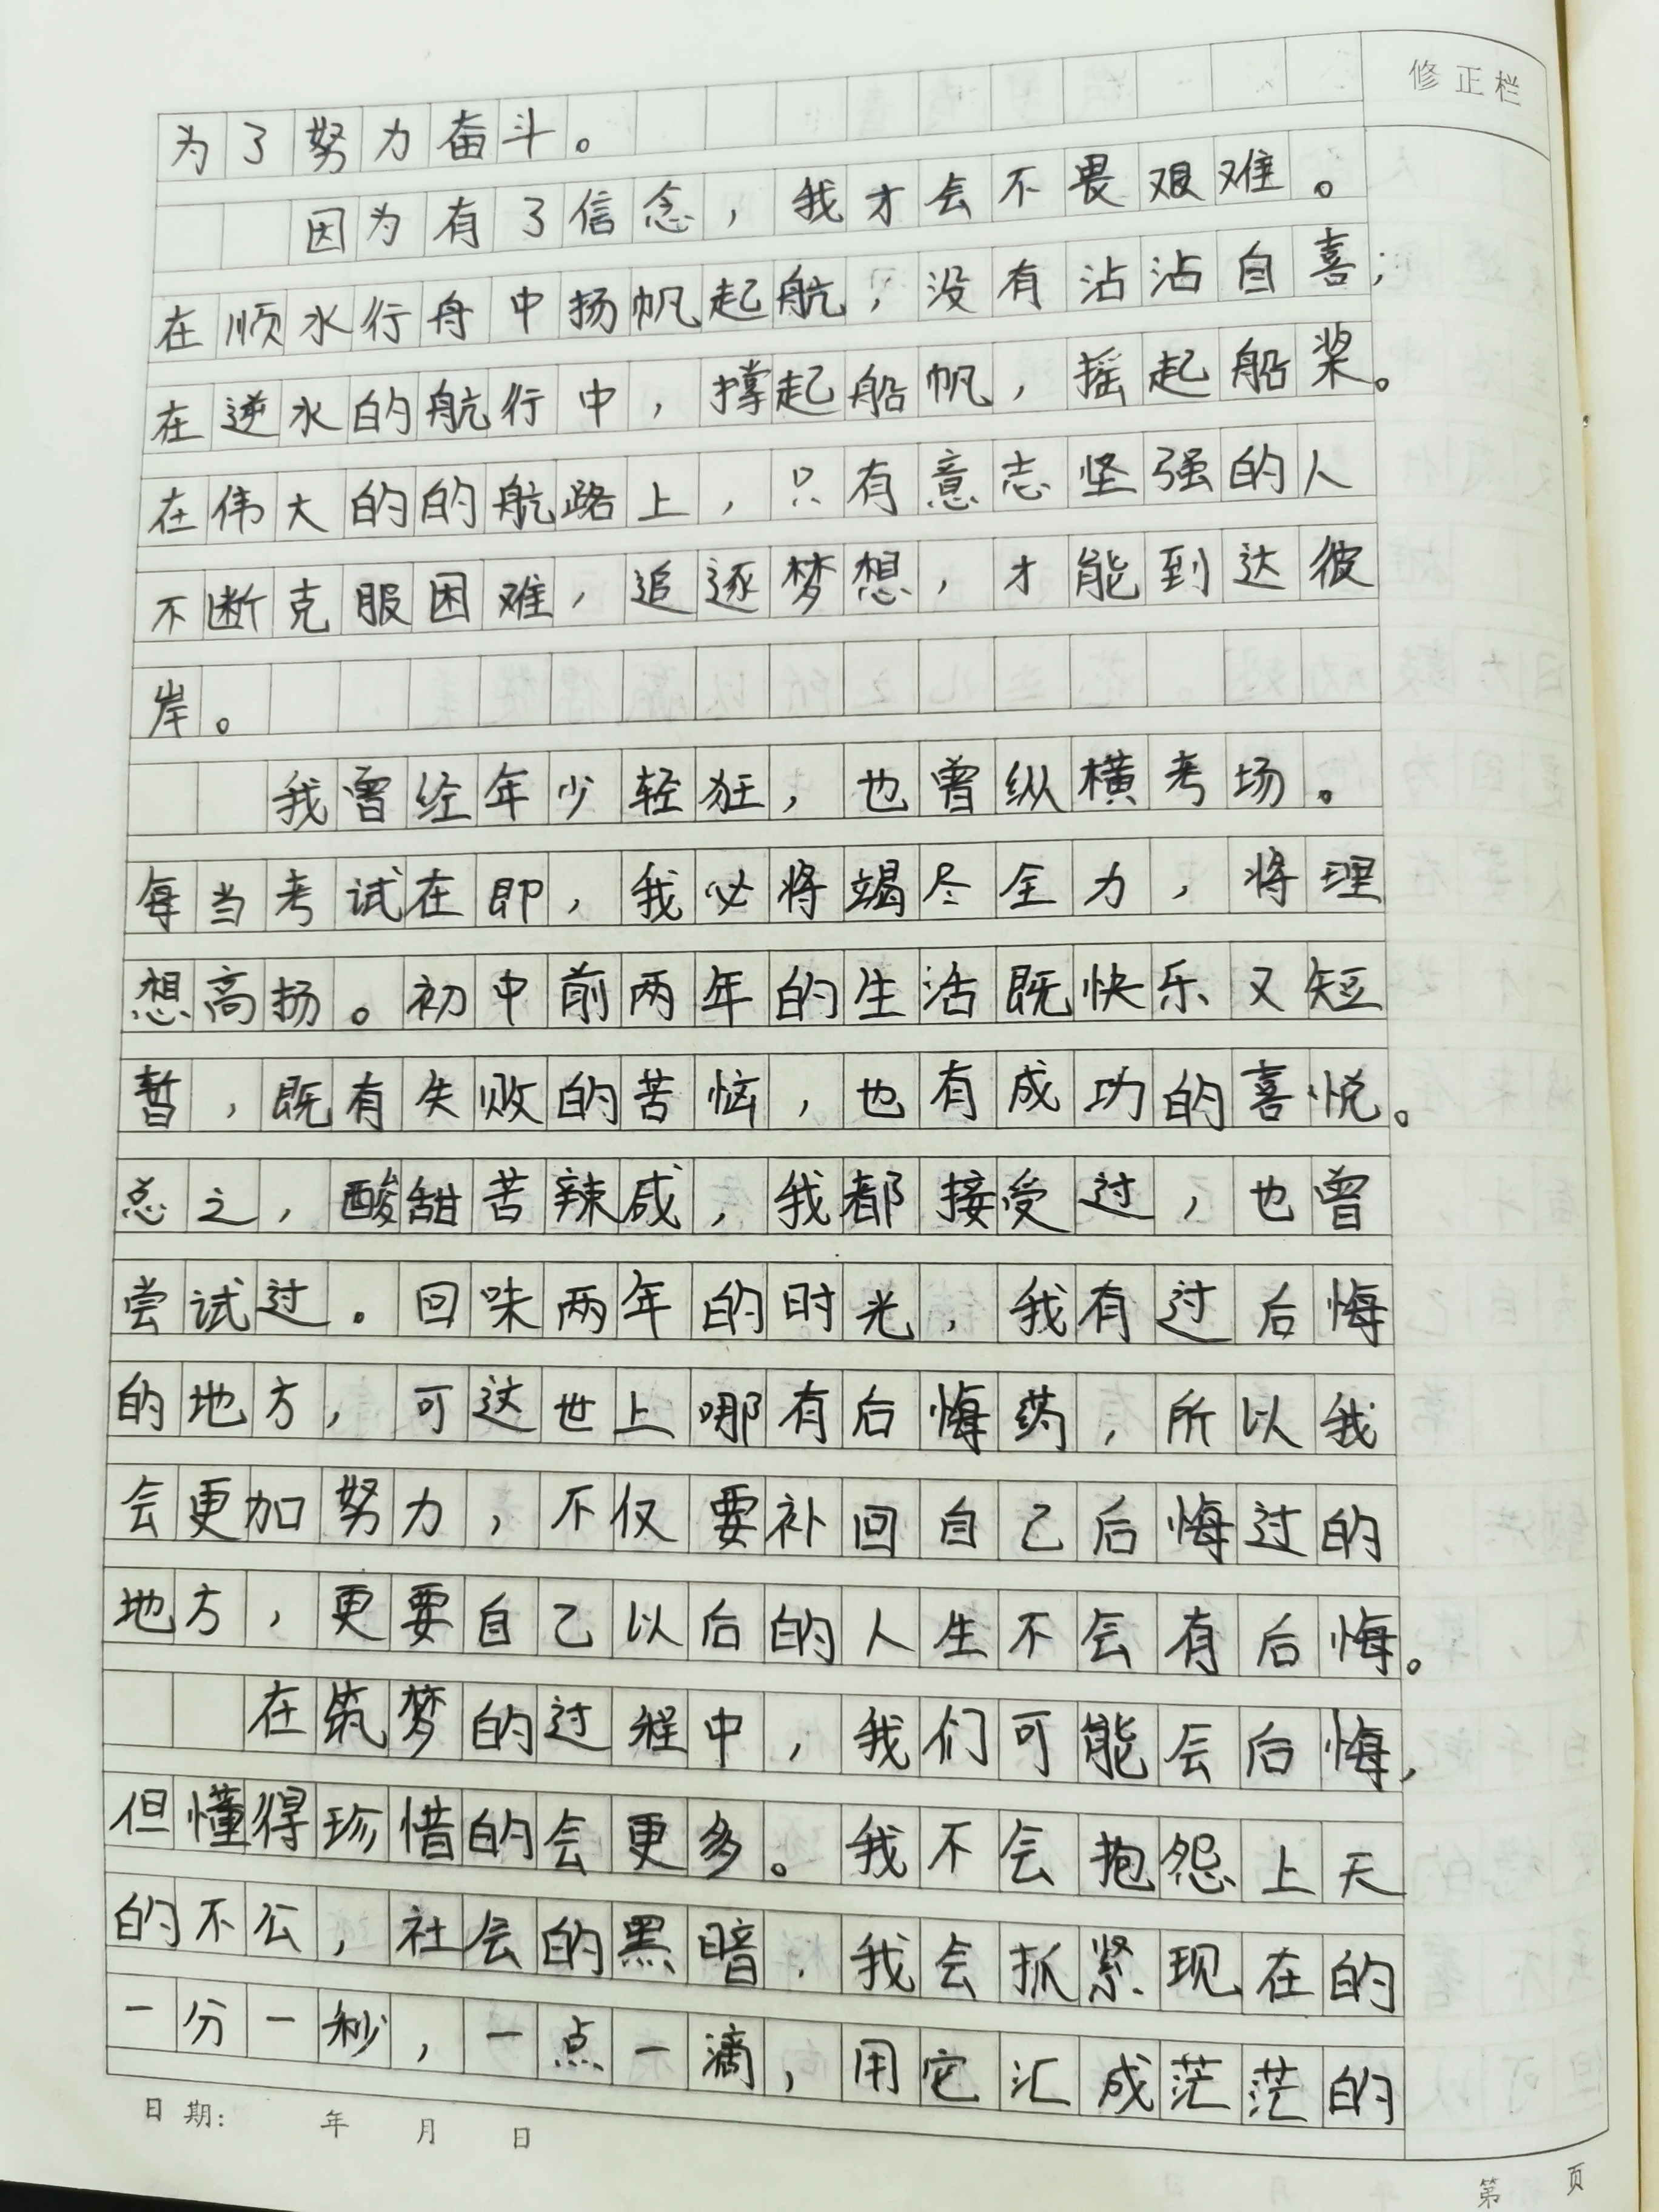 修正栏
为了努力奋斗。
因为有了信念，我才会不畏艰难。
在顺水行舟中扬帆起航，没有沾沾自喜；
在逆水的航行中，撑起船帆，摇起船桨。
在伟大的的航路上，只有意志坚强的人
不断克服困难，追逐梦想，才能到达彼
岸。
我曾经年少轻狂，也曾纵横考场。
每当考试在即，我必将竭尽全力，将理
想高扬。初中前两年的生活既快乐又短
暂，既有失败的苦恼，也有成功的喜悦。
总之，酸甜苦辣咸，我都接受过，也曾
尝试过。回味两年的时光，我有过后悔
的地方，可这世上哪有后悔药，所以我
会更加努力，不仅要补回自己后悔过的
地方，更要自己以后的人生不会有后悔。
在筑梦的过程中，我们可能会后悔，
但懂得珍惜的会更多。我不会抱怨上天
的不公，社会的黑暗，我会抓紧现在的
一分一秒，一点一滴，用它汇成茫茫的
日期：　年　月　日
第　页